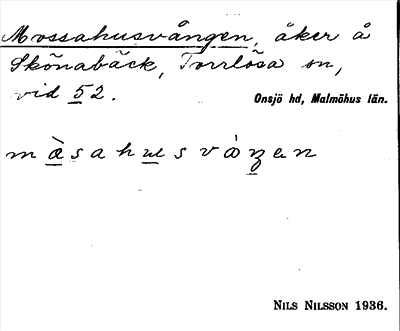 Mossahusvången, åker å
Skönabäck, Torrlösa sn,
vid 52.
Onsjö hd, Malmöhus län.
NILS NILSSON 1936.